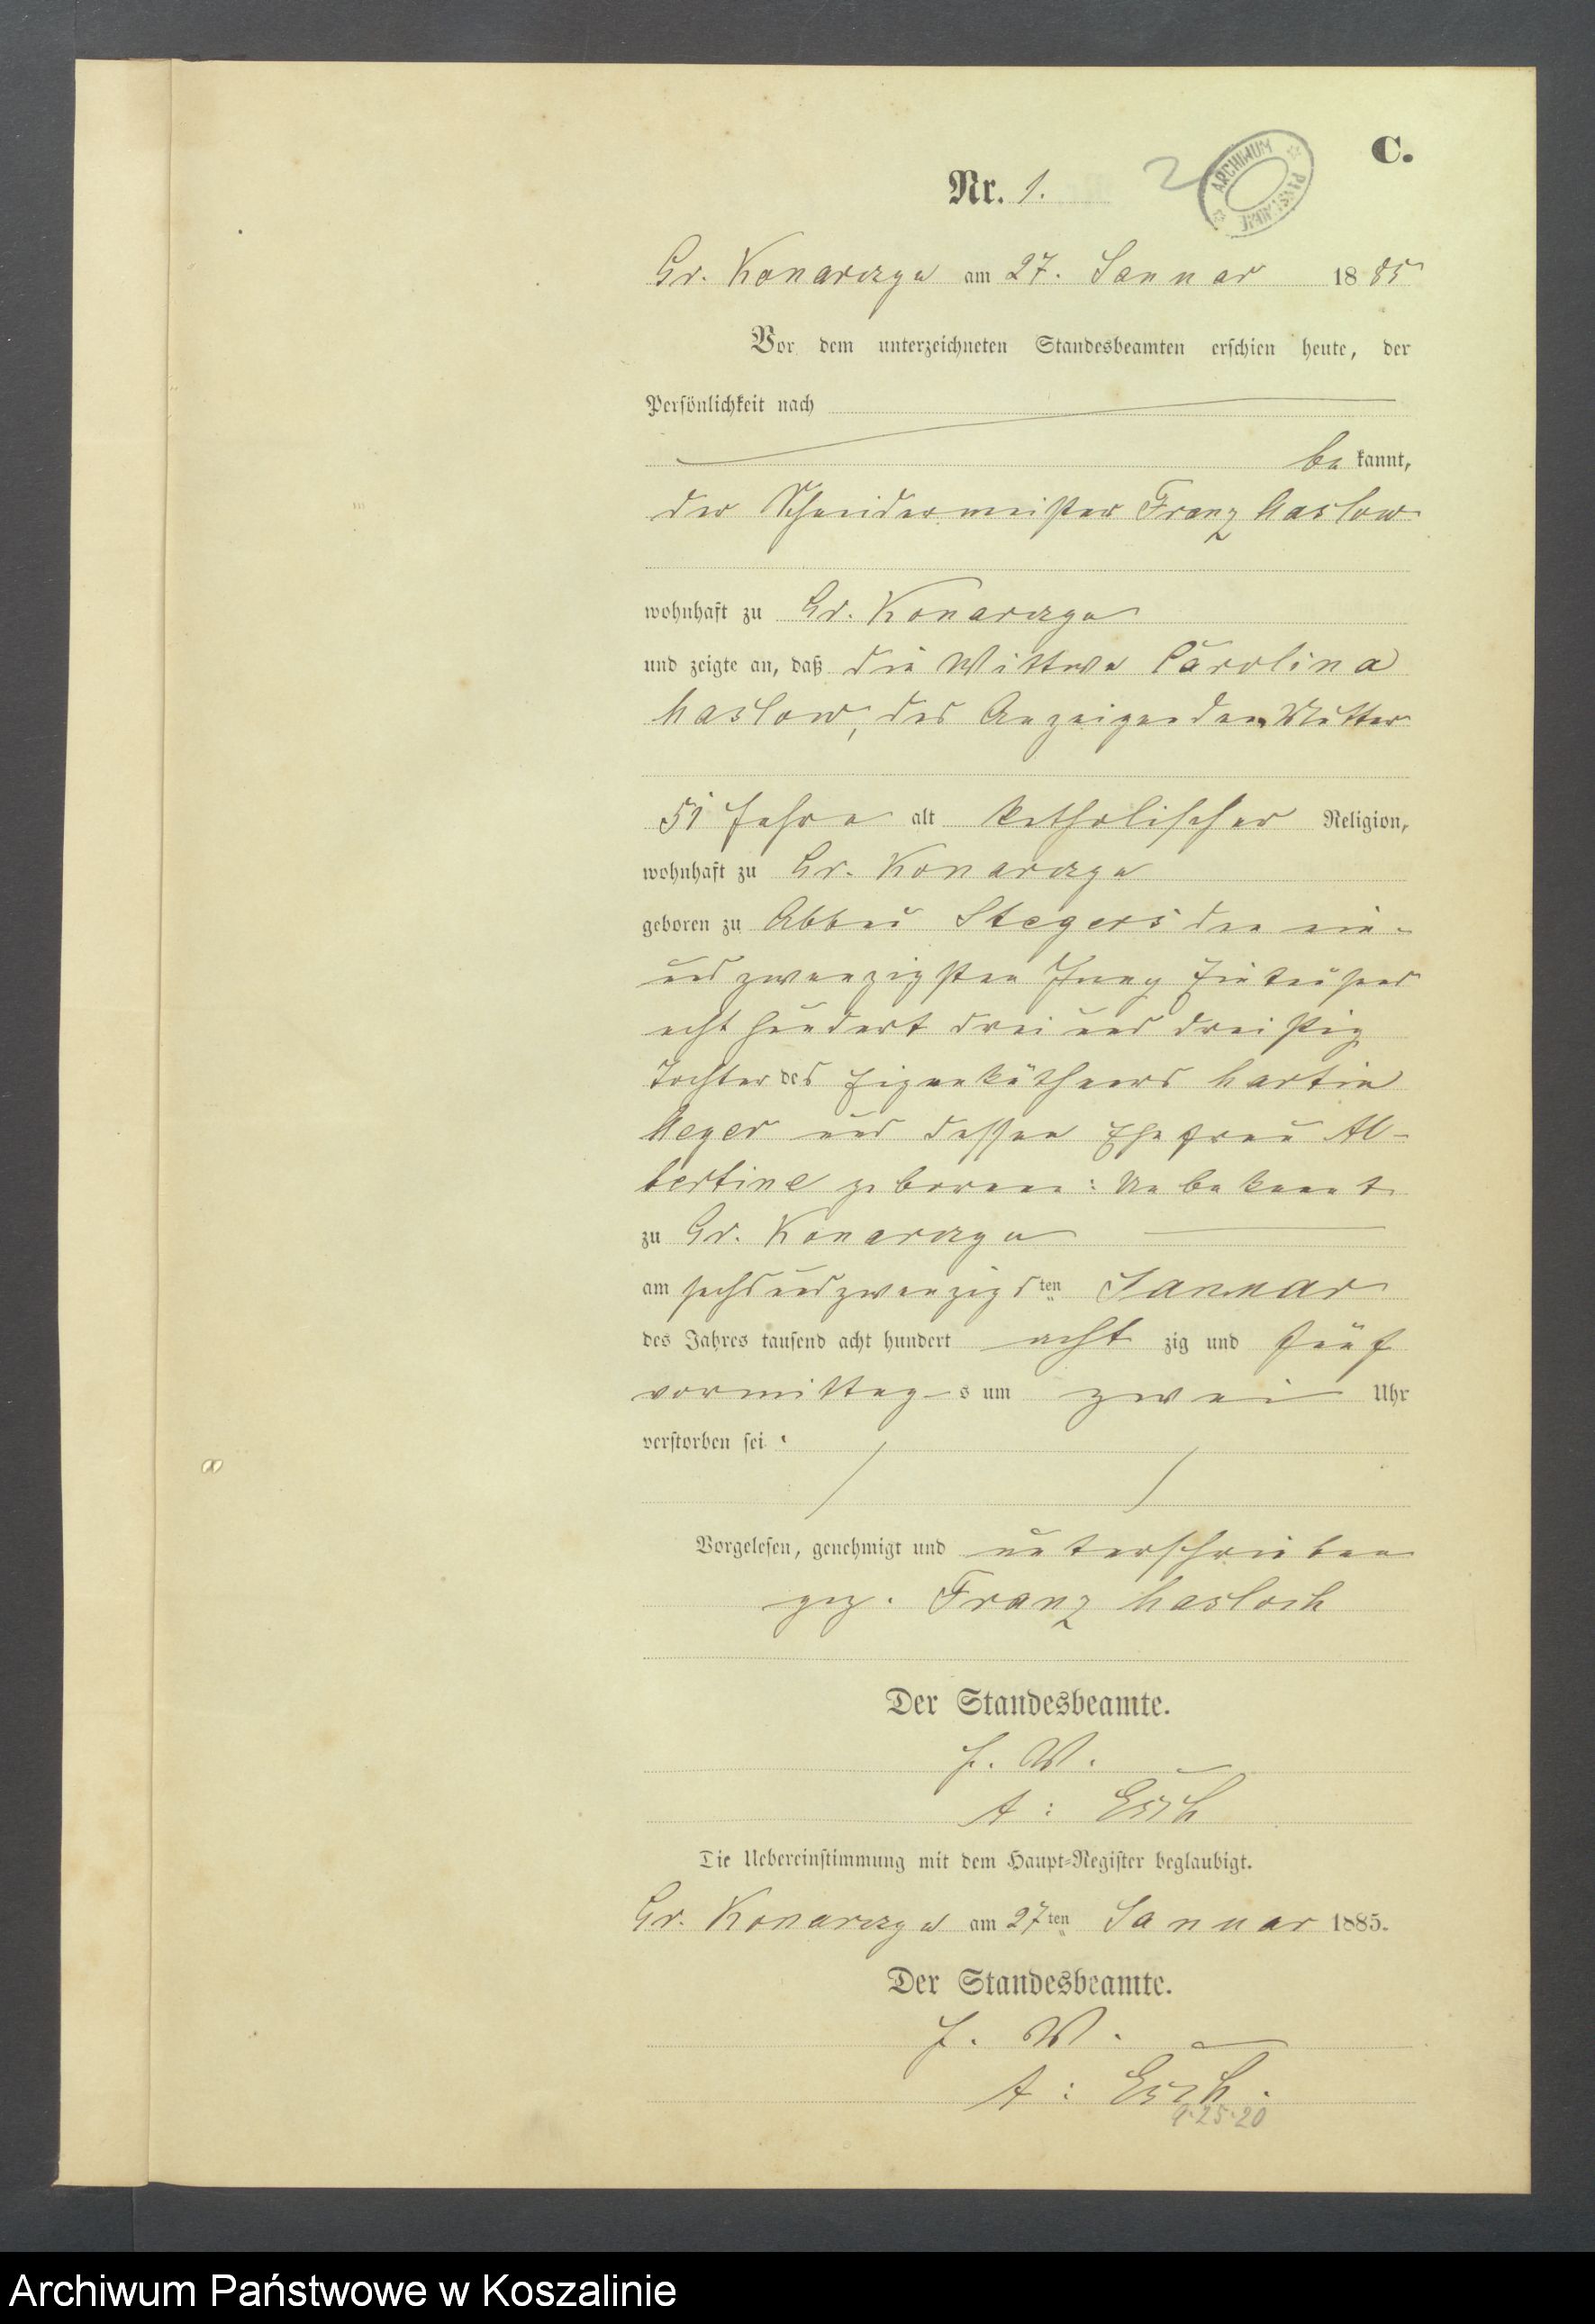 C.
Nr. 1.
2
ARCHIWUM PAŃSTWOWE
Gr. Konarczyn am 27. Januar 1885
Vor dem unterzeichneten Standesbeamten erschien heute, der
Persönlichkeit nach
be kannt,
der Schneidermeister Franz Maslow
wohnhaft zu Gr. Konarczyn
und zeigte an, daß die Wittwe Carolina
Maslow, des Anzeigenden Mutter
51 Jahre alt katholischer Religion,
wohnhaft zu Gr. Konarczyn
geboren zu Abbau Stegers den ein-
und zwanzigsten Eintausend
acht hundert drei und dreißig
Tochter des Eigenkäthners Martin
Meger und dessen Ehefrau Al-
bertine geborene: Unbekannt
zu Gr. Konarczyn
am sechs und zwanzigs ten Januar
des Jahres tausend acht hundert acht zig und fünf
vormittag s um zwei Uhr
verstorben sei.
Vorgelesen, genehmigt und unterschrieben
gez. Franz Masloch
Der Standesbeamte.
J. V.
A:
Die Uebereinstimmung mit dem Haupt-Register beglaubigt.
Gr. Konarczyn am 27ten Januar 1885.
Der Standesbeamte.
J. V.
A:
9.25.20
Archiwum Państwowe w Koszalinie